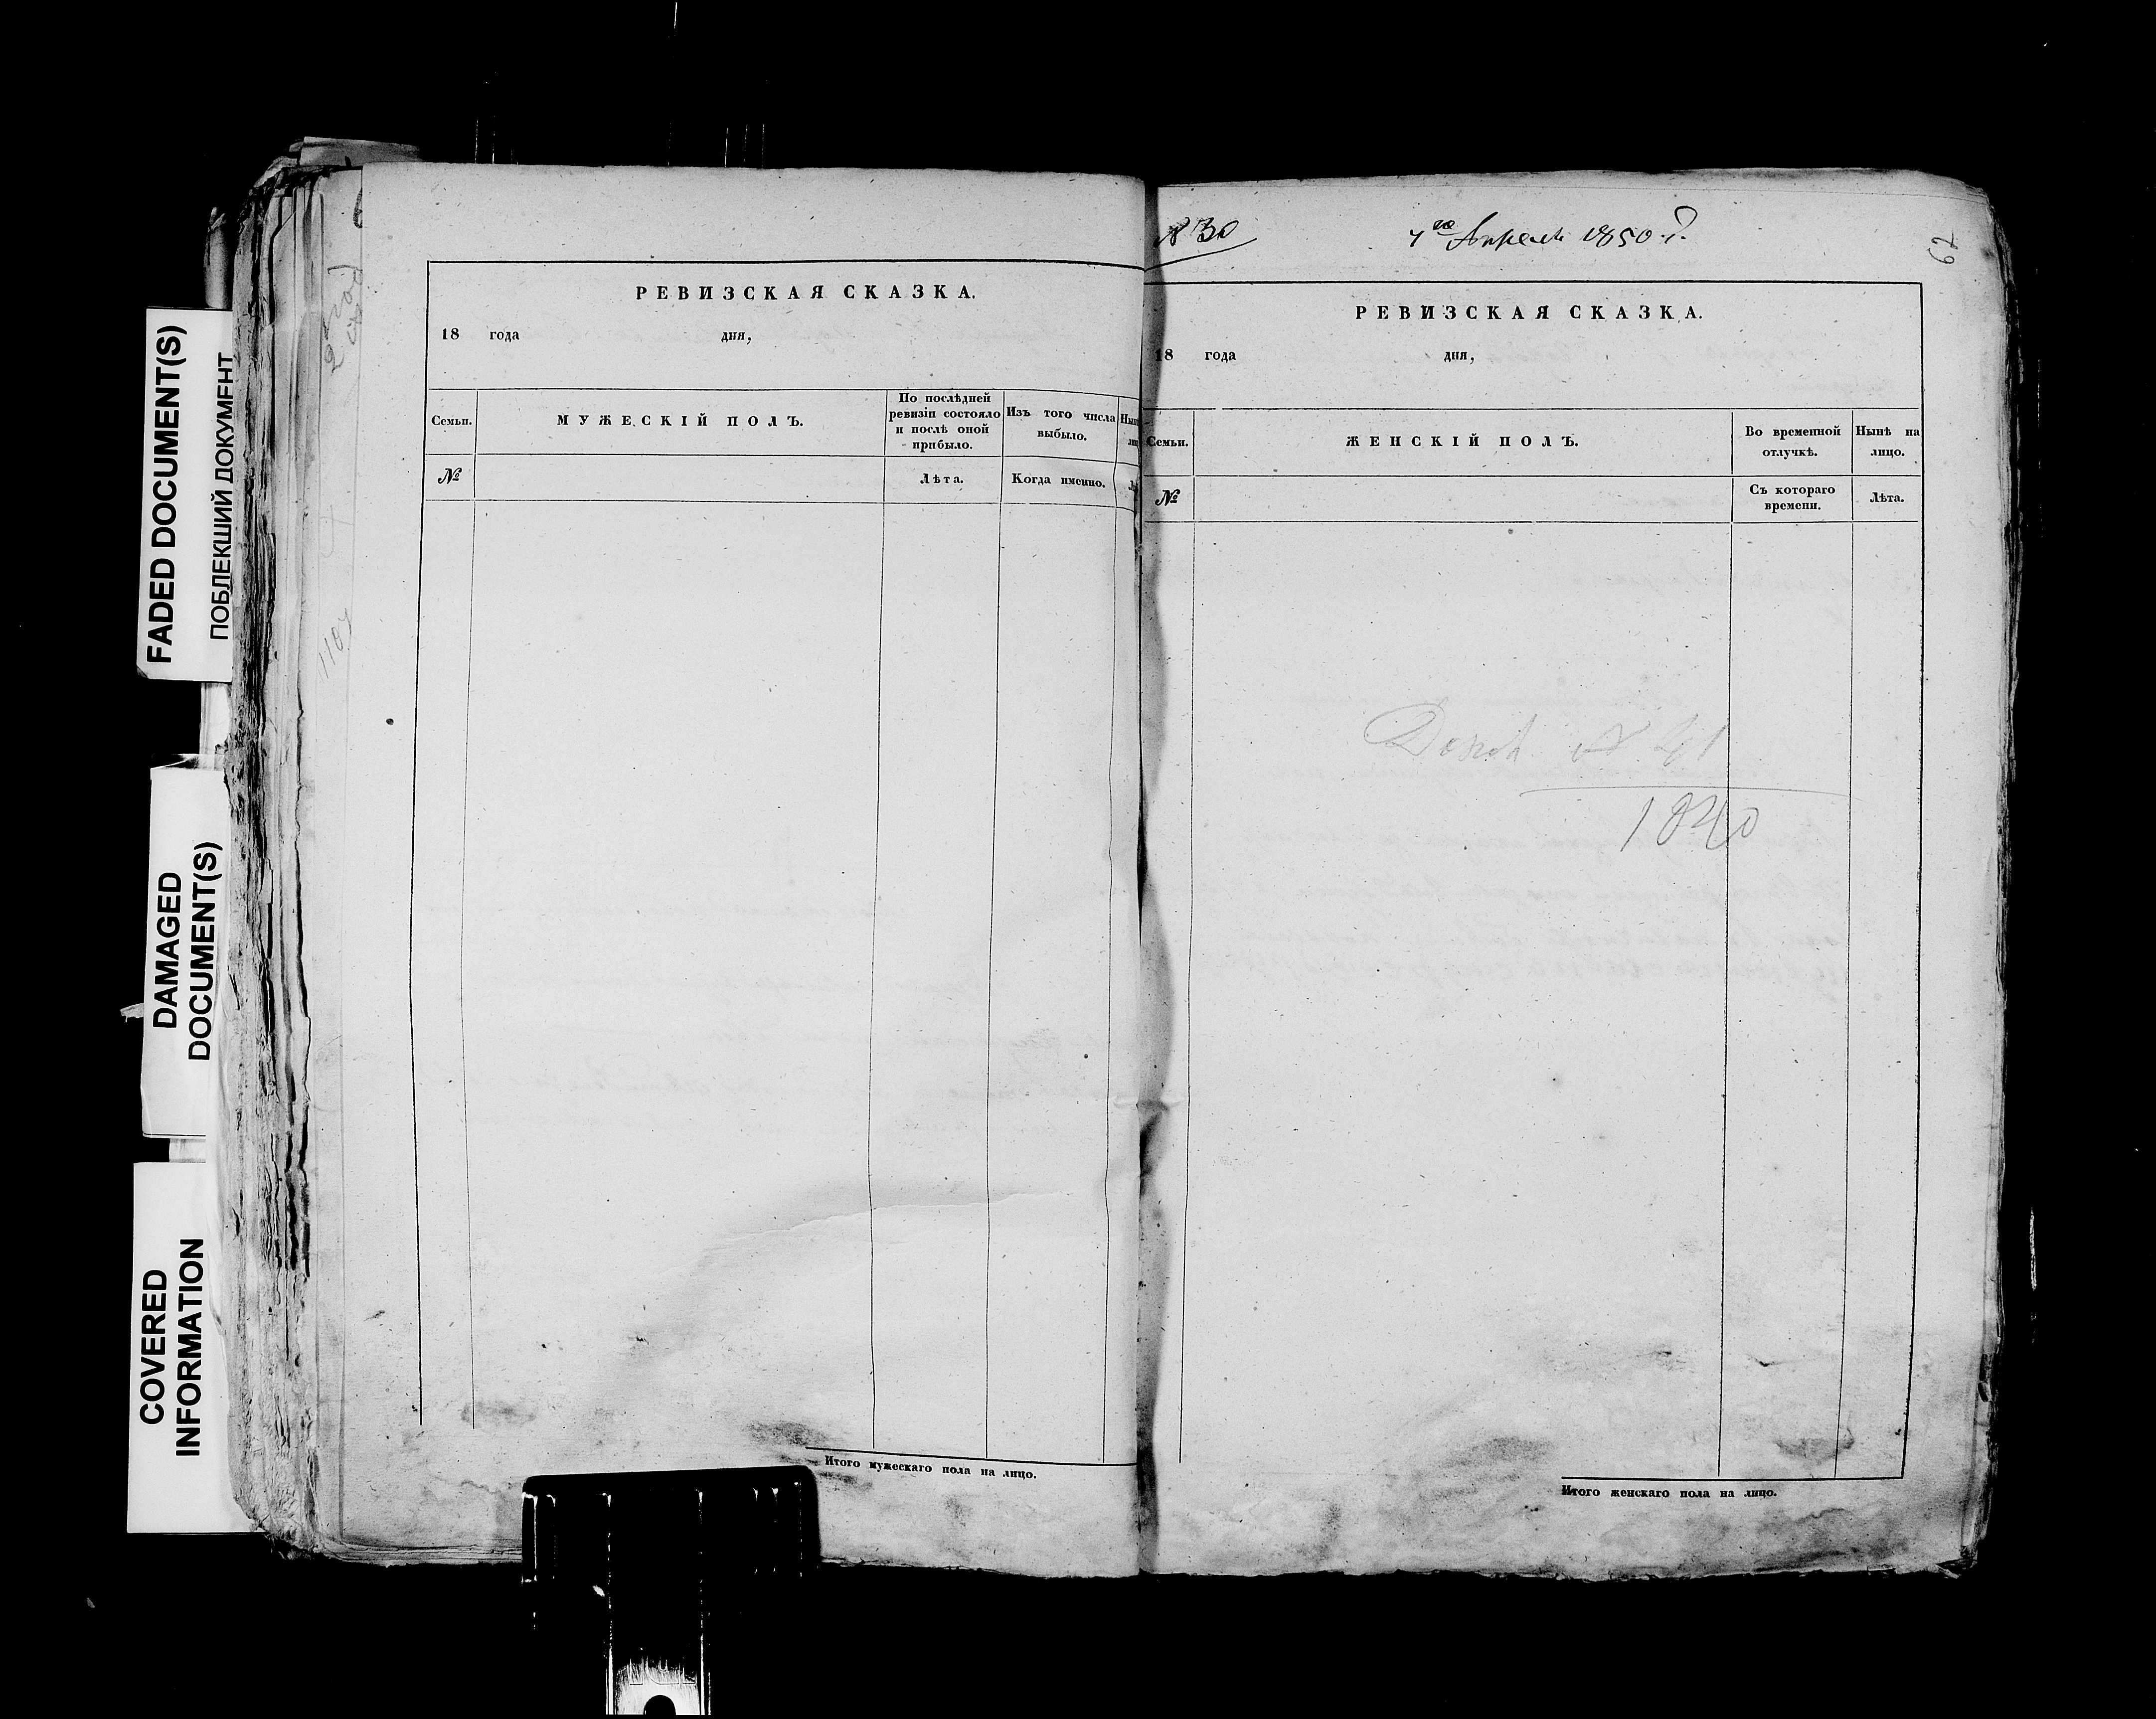 FADED DOCUMENT(S)
ПОБЛЕКШИЙ ДОКУМЕНТ
DAMAGED
DOCUMENT(S)
COVERED
INFORMATION
РЕВИЗСКАЯ СКАЗКА.
18 года дня,
Семьи.
МУЖЕСКІЙ ПОЛЪ.
По послѣдней
ревизіи состояло
и послѣ оной
прибыло.
Изъ того числа
выбыло.
№
Лѣта.
Когда именно.
Итого мужескаго пола на лицо.
№ 30
7го Апреля 1850 г.
62
РЕВИЗСКАЯ СКАЗКА.
18 года дня,
Семьи.
ЖЕНСКІЙ ПОЛЪ.
Во временной
отлучкѣ.
Нынѣ на
лицо.
№
Съ котораго
времени.
Лѣта.
1840
Итого женскаго пола на лицо.